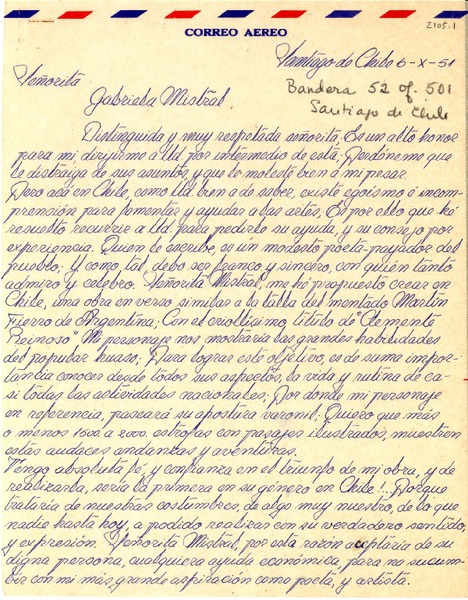 2105.1
CORREO AEREO
Santiago de Chile 6-X-51
Señorita
Bandera 52 of. 501
Gabriela Mistral
Santiago de Chile
Distinguida y muy respetada señorita, Es un alto honor
para mi, dirijirme a Ud. por intermedio de ésta, Perdóneme que
le distraiga de sus asuntos, y que le moleste bien a mi pesar.
Pero acá en Chile, como Ud. bien a de saber, existe egoísmo é incom-
prensión para fomentar y ayudar a las artes, Es por ello que hé
resuelto recurrir a Ud. para pedirle su ayuda, y su consejo por
experiencia. Quien le escribe, es un modesto poeta-payador del
pueblo; Y como tal debo ser franco y sincero, con quién tanto
admiro y celebro. Señorita Mistral, me hé propuesto crear en
Chile, una obra en verso similar a la talla del mentado Martín
Fierro de Argentina; Con el criollísimo, título de "Clemente
Reinoso" Mi personaje nos mostraría las grandes habilidades
del popular huaso; Para lograr este objetivo, es de suma impor-
tancia conocer desde todos sus aspectos, la vida y rutina de ca-
si todas las actividades nacionales; Por donde mi personaje
en referencia, paseará su apostura varonil; Quiero que más
o menos 1500 a 2000 estrofas con pasajes ilustrados, muestren
estas audaces andanzas y aventuras.
Tengo absoluta fé, y confianza en el triunfo de mi obra, y de
realizarla, sería la primera en su género en Chile!.. Porque
trataría de nuestras costumbres, de algo muy nuestro, de lo que
nadie hasta hoy, a podido realizar con su verdadero sentido,
y expresión. Señorita Mistral, por esta razón aceptaría de su
digna persona, cualquiera ayuda económica, para no sucum-
bir con mi más, grande aspiración como poeta, y artista.